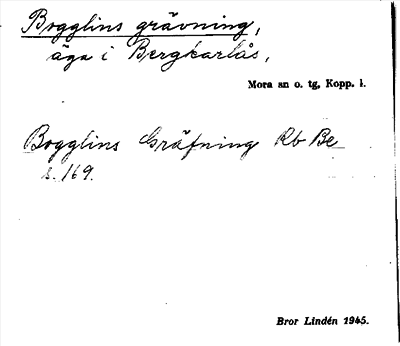 Bogglins grävning,
äga i Bergkarlås,
Mora sn o. tg, Kopp. l.
Bogglins Gräfning Rb Be
s. 169.
Bror Lindén 1945.